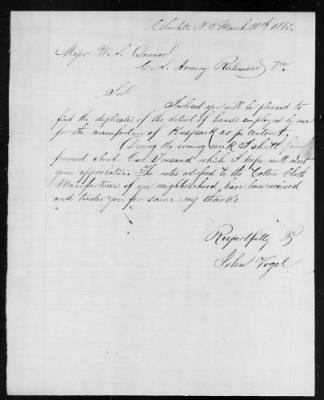 Charlotte N.C March 30th 1863.
Major W. S.
C. S. Armory Richmond Va
Sir!
Inclosed you will be pleased to
find the duplicates of the detail of hands employed by me
for the manufactury of Knapsack as pr contract.
During the coming week I shall
forward about One Thousand which I hope will meet
your approbation. The notes adressed to the Cotton Cloth
Manufacturers of our neighbourhood, have been received
and tender you for same my thanks
Respectfully
John Vogel.